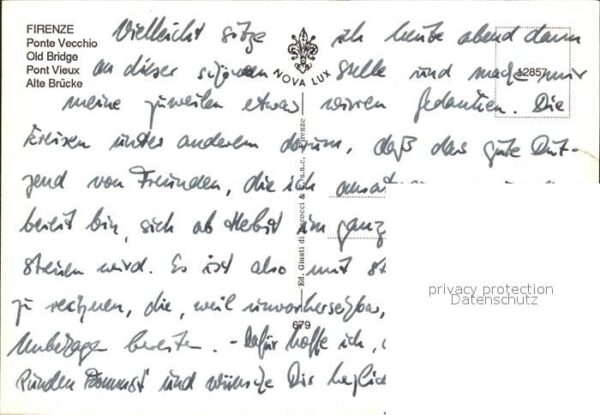 FIRENZE
Ponte Vecchio
Old Bridge
Pont Vieux
Alte Brücke
NOVA LUX
12857
Vielleicht sitze ich heute abend dann
an dieser schönen Stelle und mache mir
meine zuweilen etwas wirren Gedanken. Die
kreisen unter anderem darum, daß das gute Dut-
zend von Freunden, die ich
bereit bin, sich ab Herbst im ganz
streuen wird. Es ist also mit
zu rechnen, die, weil unvorhersehbar,
Unbehagen bereiten. - Dafür hoffe ich,
und wünsche Dir herzlich
Ed. Giusti di Becocci & C. s.n.c. - Firenze
679
privacy protection
Datenschutz